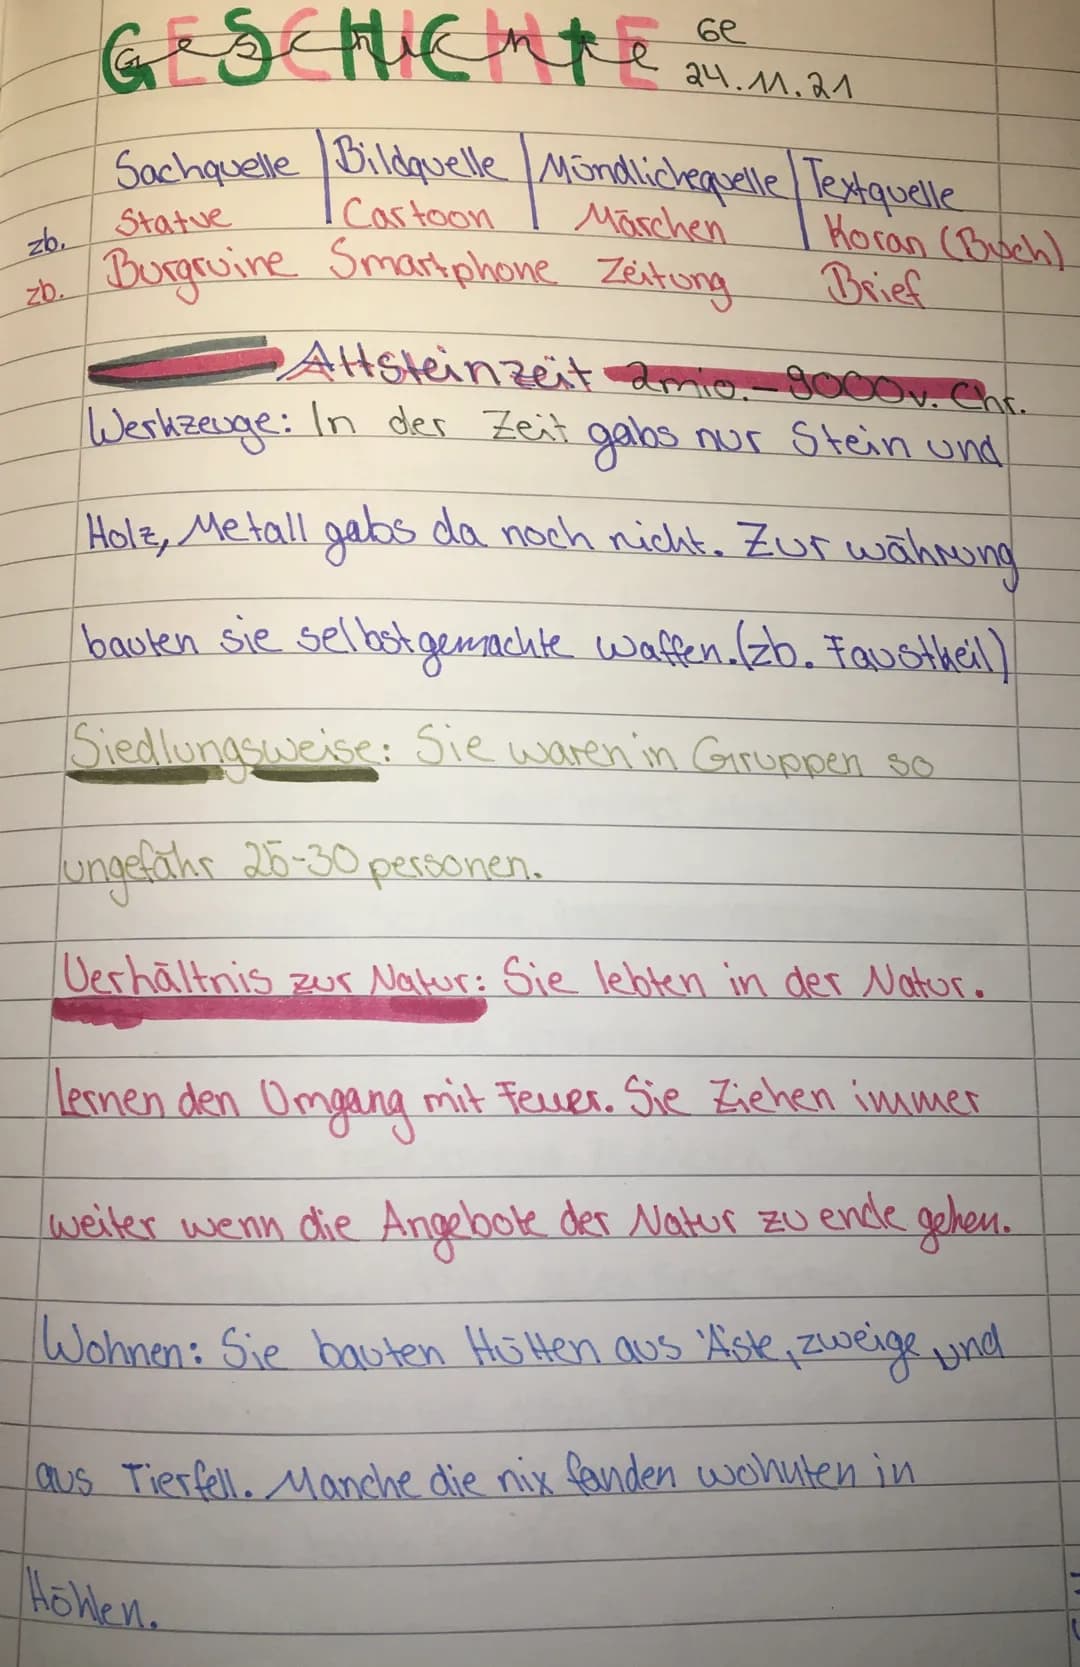 GESCHICHTE
Ge
24.11.21
Sachquelle | Bildquelle | Mündlichequelle | Textquelle
zb. Statue Cartoon Märchen Koran (Buch)
zb. Burgruine Smartphone Zeitung Brief
Altsteinzeit 2mio. - 9000v. Chr.
Werkzeuge: In der Zeit gabs nur Stein und
Holz, Metall gabs da noch nicht. Zur währung
bauten sie selbstgemachte waffen. (zb. Faustheil)
Siedlungsweise: Sie waren in Gruppen so
ungefähr 25-30 personen.
Verhältnis zur Natur: Sie lebten in der Natur.
lernen den Umgang mit Feuer. Sie Ziehen immer
weiter wenn die Angebote der Natur zu ende gehen.
Wohnen: Sie bauten Hütten aus Äste, zweige und
aus Tierfell. Manche die nix fanden wohnten in
Höhlen.